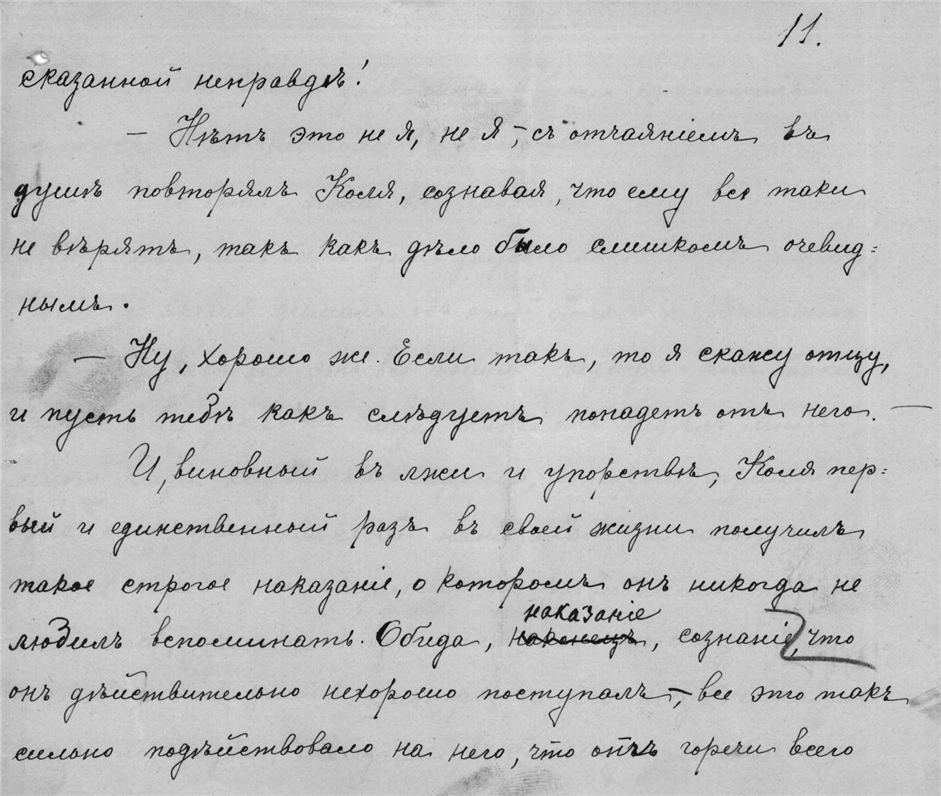 11.
сказанной неправдѣ!
— Нѣтъ это не я, не я, — съ отчаяніемъ въ
душѣ повторялъ Коля, сознавая, что ему все таки
не вѣрятъ, такъ какъ дѣло было слишкомъ очевид=
нымъ.
— Ну, хорошо же. Если такъ, то я скажу отцу,
и пусть тебѣ какъ слѣдуетъ попадетъ отъ него. —
И, виновный въ лжи и упорствѣ, Коля пер=
вый и единственный разъ въ своей жизни получилъ
такое строгое наказаніе, о которомъ онъ никогда не
любилъ вспоминать. Обида, наказаніе, сознаніе, что
онъ дѣйствительно нехорошо поступалъ, — все это такъ
сильно подѣйствовало на него, что отъ горечи всего